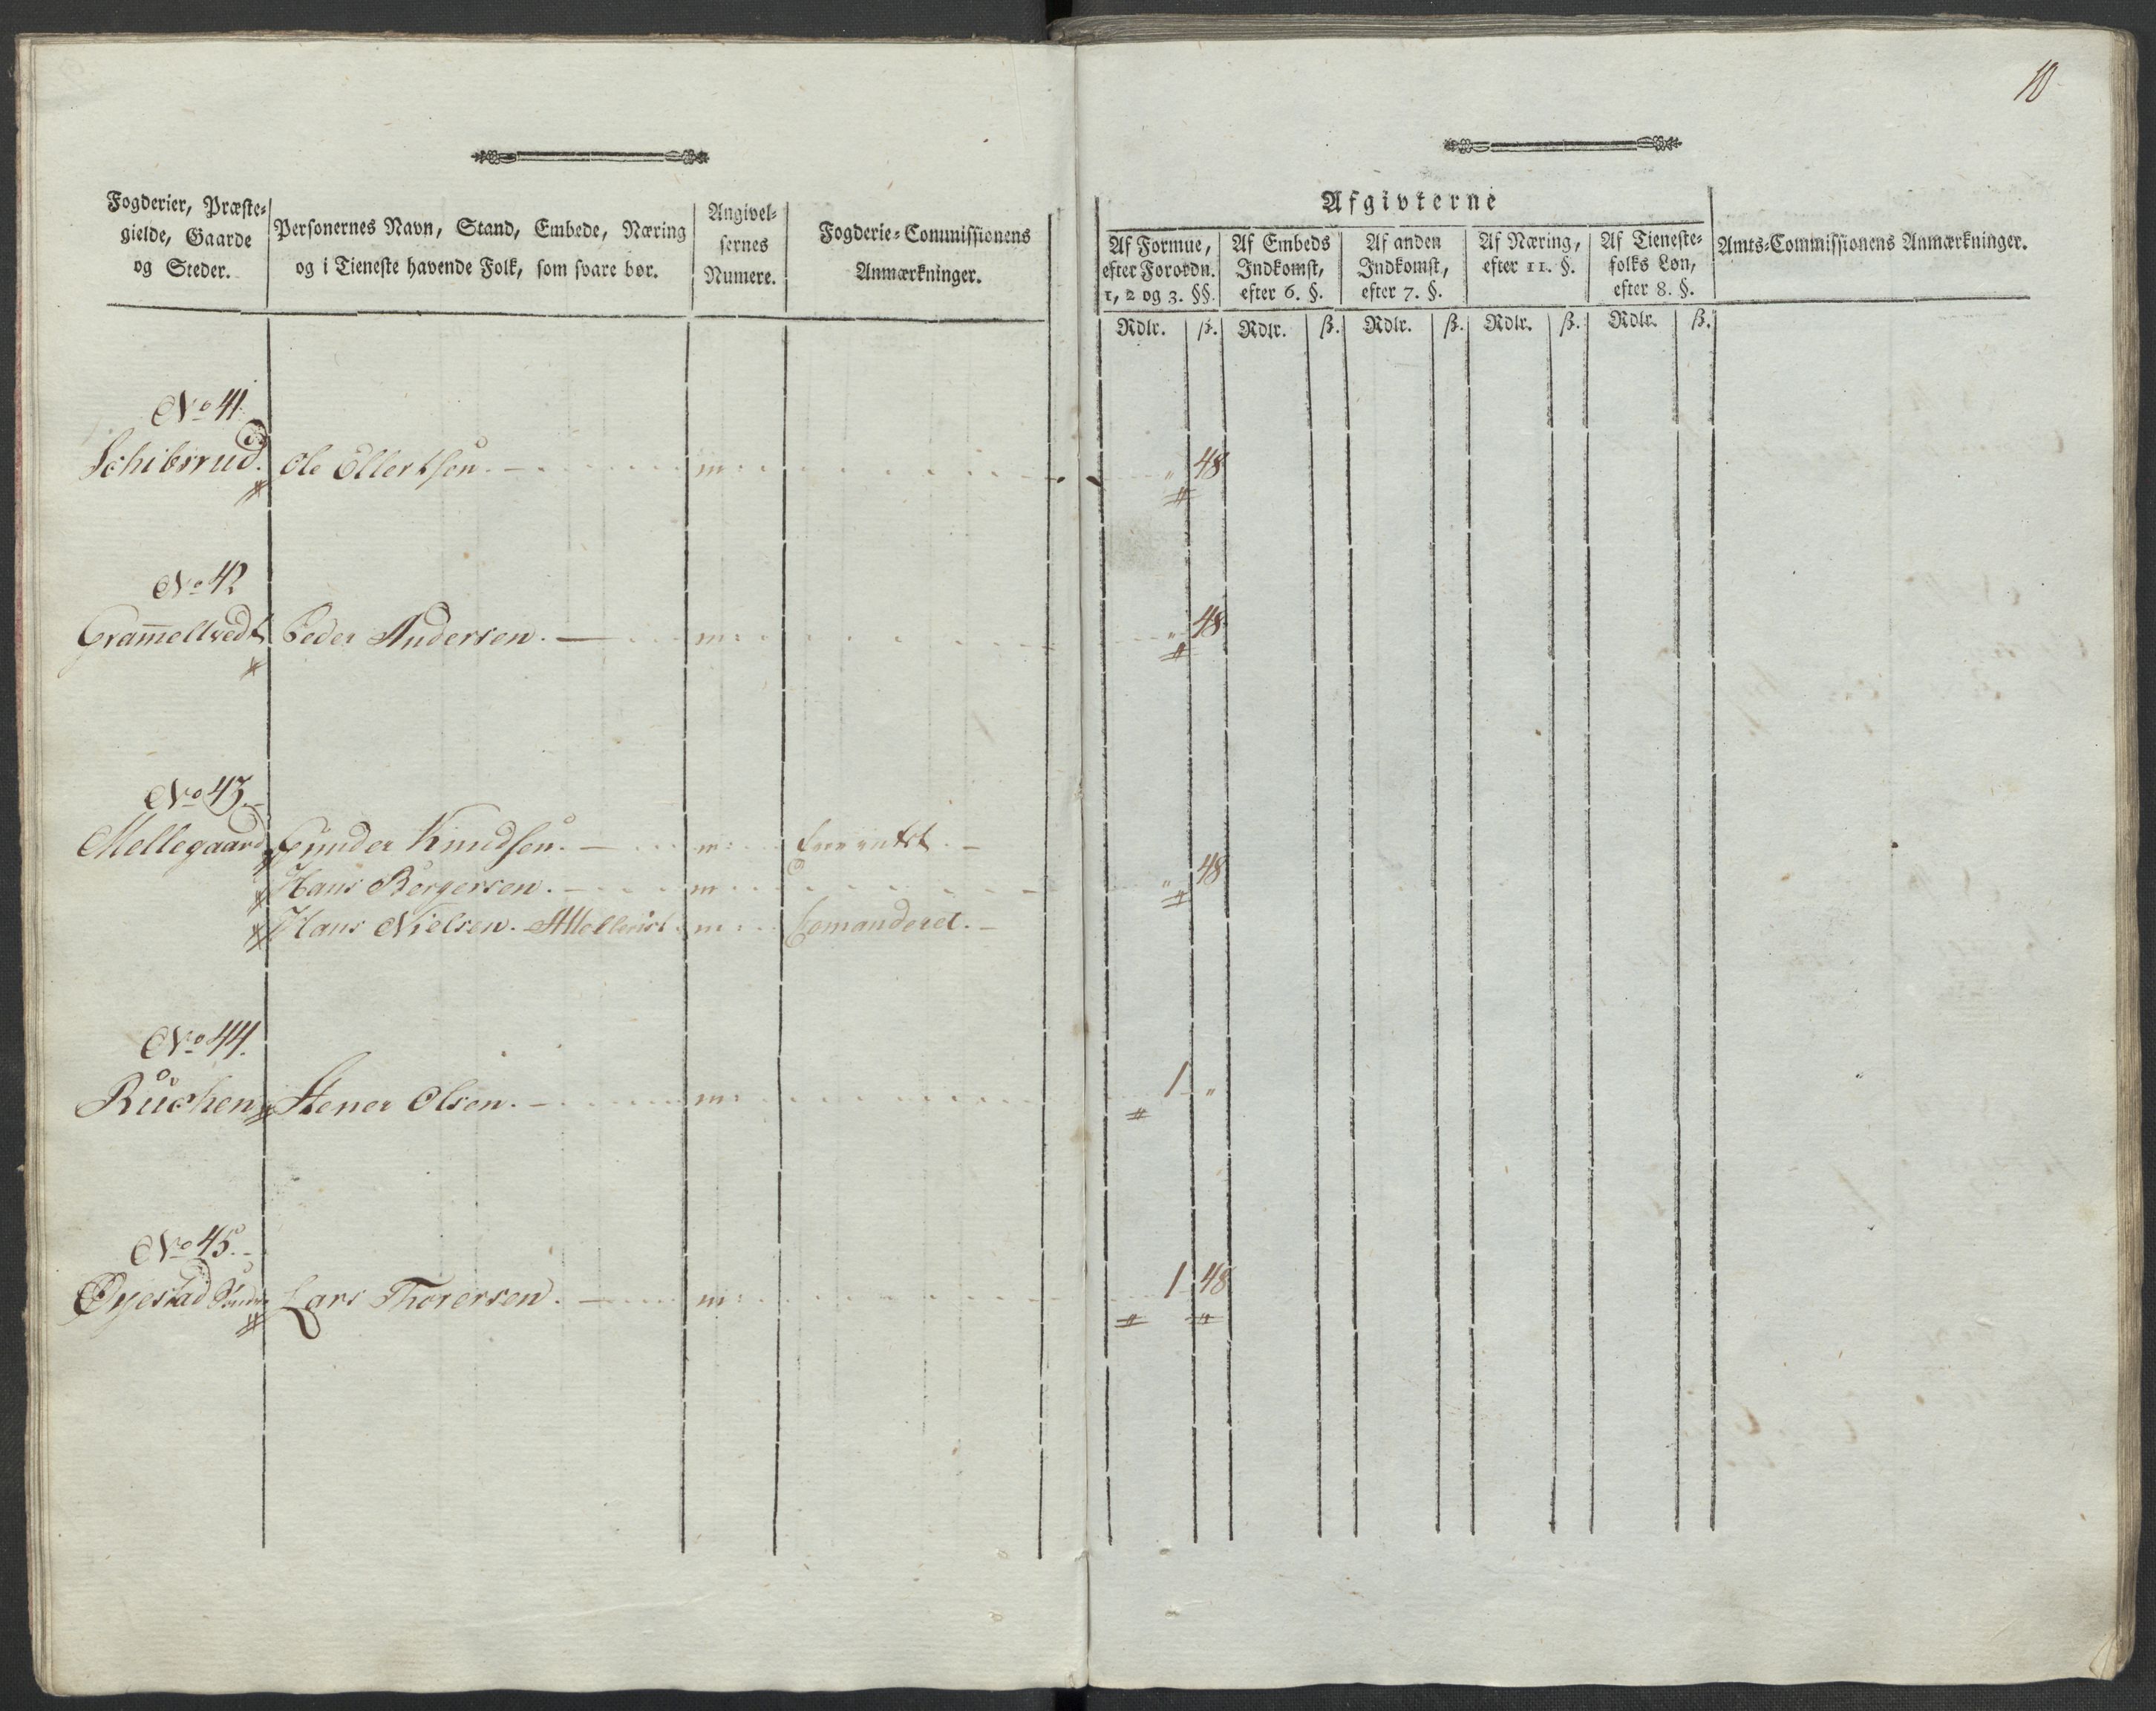 10
Fogderier, Præste-
gielde, Gaarde
og Steder.
Personernes Navn, Stand, Embede, Næring
og i Tieneste havende Folk, som svare bør.
Angivel-
sernes
Numere.
Fogderie-Commissionens
Anmærkninger.
Afgivterne
Af Formue,
efter Forordn.
1, 2 og 3. §§.
Af Embeds
Indkomst,
efter 6. §.
Af anden
Indkomst,
efter 7. §.
Af Næring,
efter 11. §.
Af Tieneste-
folks Løn,
efter 8. §.
Amts-Commissionens Anmærkninger.
Rdlr. ß. Rdlr. ß. Rdlr. ß. Rdlr. ß. Rdlr. ß.
No 41.
Schibrrud. Ole Ellertsen. — m: „ 48
No 42
Gram̄eltvedt Peder Andersen. — m: „ 48
No 43.
Mellegaard Gunder Knudsen. — m:
Hans Børgersen. — m „ 48
Hans Nielsen. m: Comanderet. —
No 44.
Ruchen Stener Olsen. — m: 1 „
No 45.
Øyestad Lars Thorersen. — m: 1 48